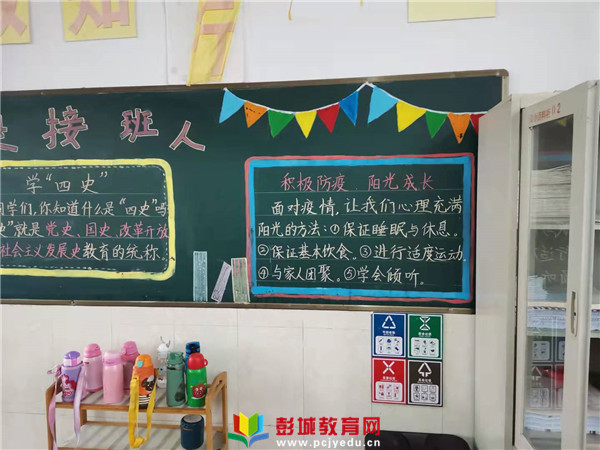 知
是接班人
学“四史”
同学们，你知道什么是“四史”吗
史”就是党史、国史、改革开放
社会主义发展史教育的统称
积极防疫、阳光成长
面对疫情，让我们心理充满
阳光的方法：①保证睡眠与休息。
②保证基本饮食。③进行适度运动。
④与家人团聚。⑤学会倾听。
彭城教育网
www.pcjyedu.cn